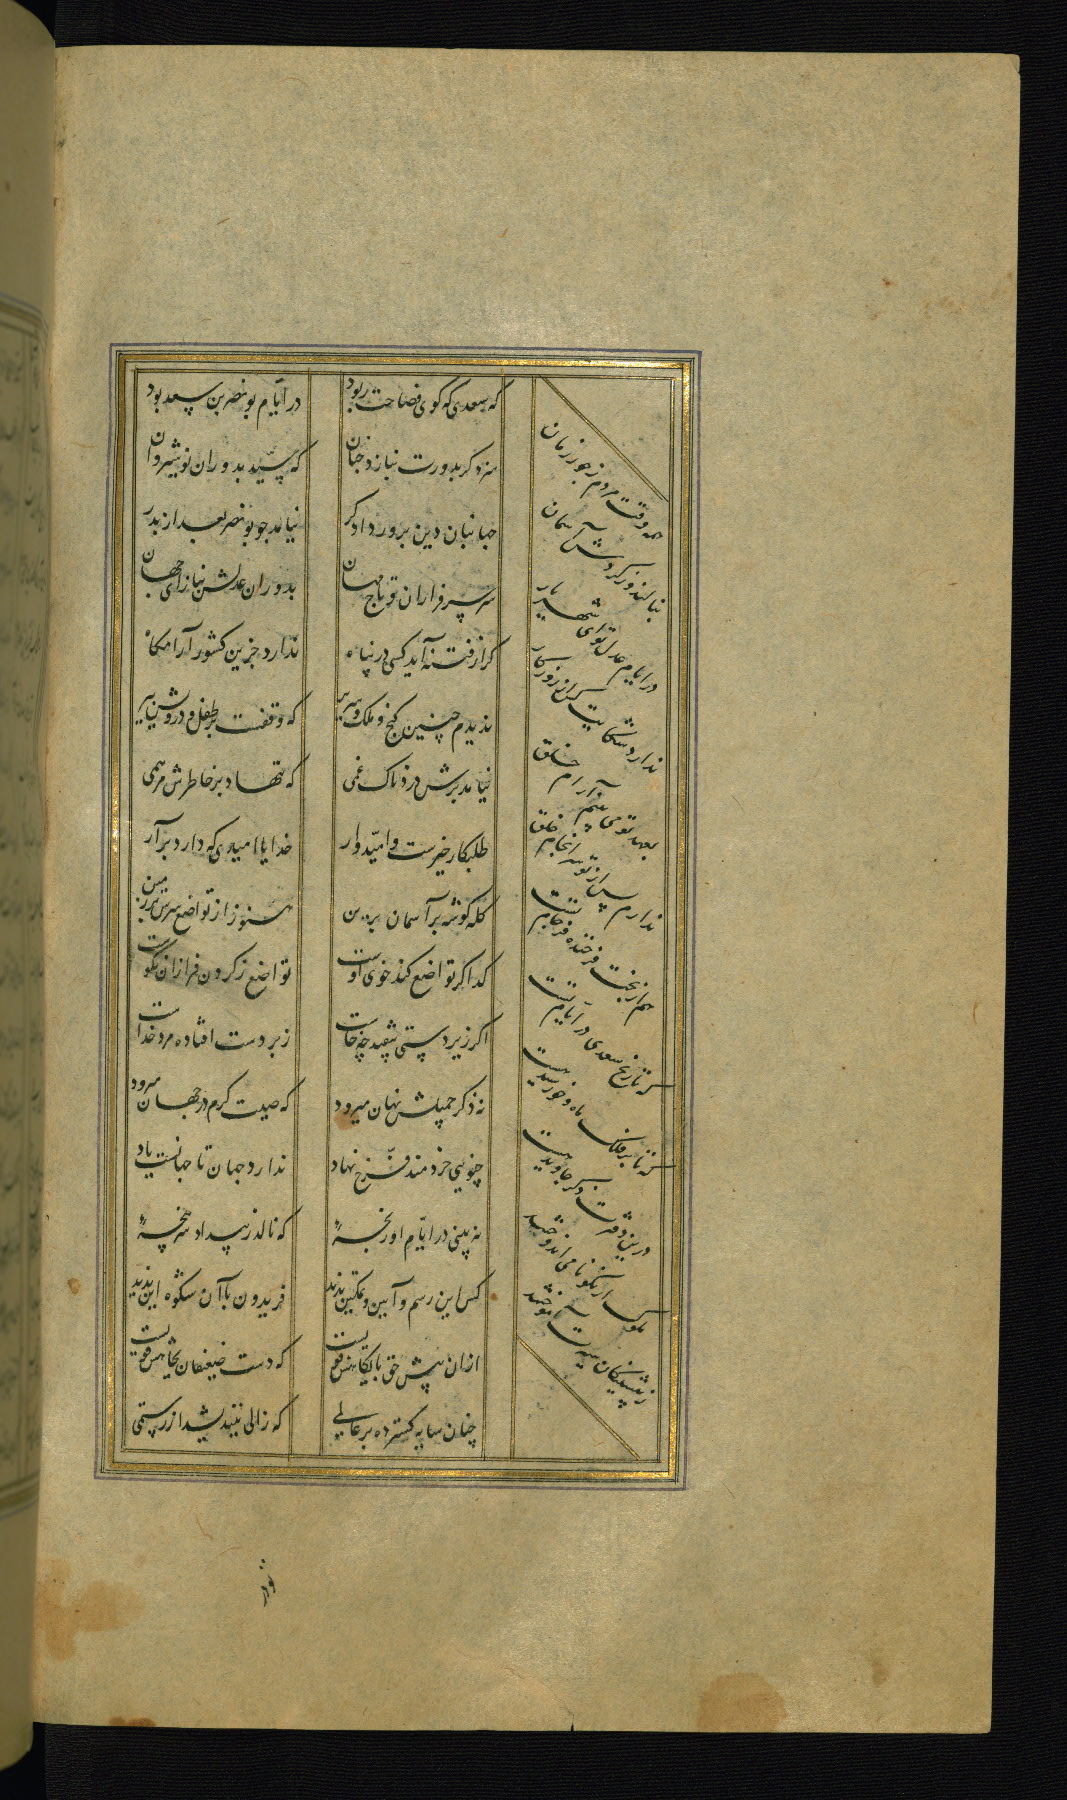 که سعدی که کوی فصاحت ربود در ایّام بونصر بن سعد بود
سزد کر بدورت نبازد جنان که سیّد بدوران نوشیروان
جهانبان دین پرور دادکر نیامد چو بونصر بعد از بدر
سر سرفرازان و تاج مهان بدوران عدلش بناز ای جهان
کر از فتنه آید کسی در پناه ندارد جز این کشور آرامکاه
ندیدم چنین کنج و ملک و سریر که وقفست بر طفل و درویش و پیر
نیامد برش دردناک غمی که ننهاد بر خاطرش مرهمی
طلبکار خیرست و امیدوار خدایا امیدی که دارد برآر
کله کوشه بر آسمان برین هنوز از تواضع سرش بر زمین
کدا کر تواضع کند خوی اوست تواضع ز کردن فرازان نکوست
اکر زیردستی بیفتد چه خاست زبردست افتاده مرد خداست
نه ذکر جمیلش نهان میرود که صیت کرم در جهان میرود
چنویی خردمند فرّخ نهاد ندارد جهان تا جهانست یاد
نه بینی در ایّام او رنجهٔ که نالد ز بیداد سرپنجهٔ
کس این رسم و آیین و تمکین ندید فریدون با آن شکوه این ندید
ازان پیش حق بایکاهش قویست که دست ضعیفان بجاهش قویست
چنان سایه کسترده بر عالمی که زالی نیندیشد از رستمی
همه وقت مردم ز جور زمان
بنالند و از کردش آسمان
در ایام عدل تو ای شهریار
ندارد شکایت کس از روزکار
بعهد تو می بینم آرام خلق
ندارم پس از تو سرانجام خلق
هم از بخت فرخنده فرجام تست
که تاریخ سعدی در ایّام تست
که تا بر فلک ماه و خورشید هست
درین دفترت ذکر جاوید هست
ملوک ار نکونامی اندوختند
ز پیشینکان سیرت آموختند
تو در